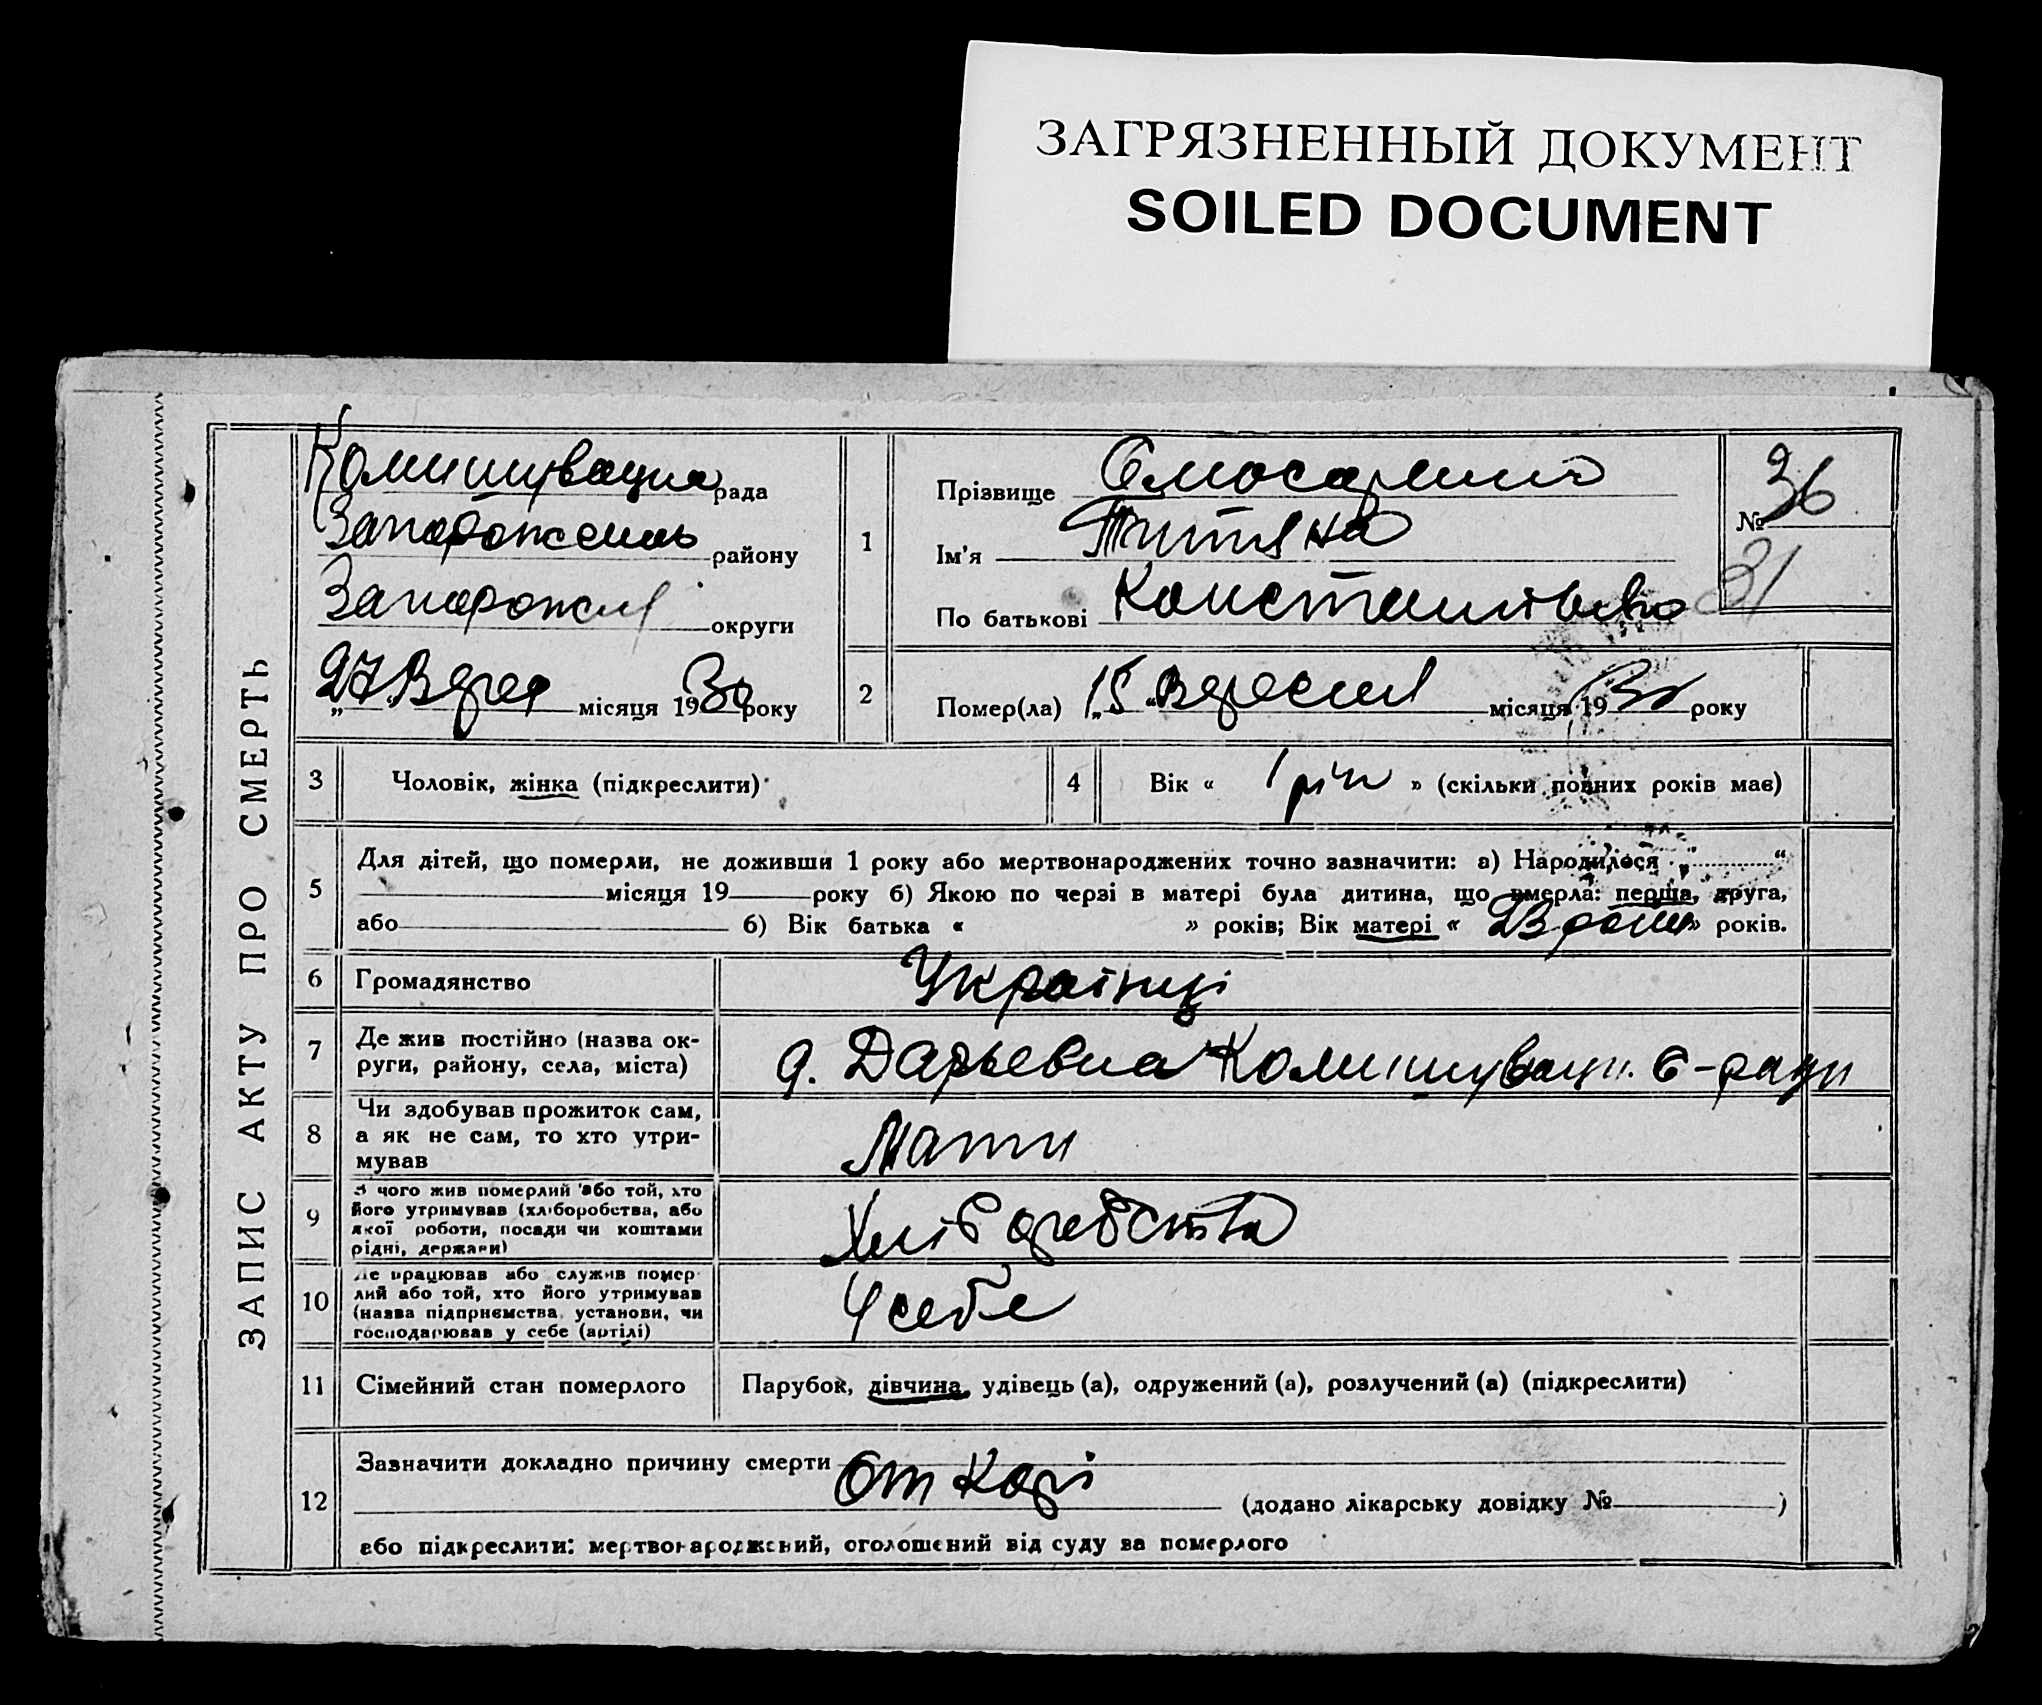 ЗАГРЯЗНЕННЫЙ ДОКУМЕНТ
SOILED DOCUMENT
ЗАПИС АКТУ ПРО СМЕРТЬ
рада
району
округи
„27 Верес місяця 1930 року
1
Прізвище
Ім'я Титяна
По батькові
№ 36
31
2
Помер(ла) „15“ Вересня місяця 1930 року
3
Чоловік, жінка (підкреслити)
4
Вік « 1 рік » (скільки повних років має)
5
Для дітей, що померли, не доживши 1 року або мертвонароджених точно зазначити: а) Народилося „ “
місяця 19 року б) Якою по черзі в матері була дитина, що вмерла: перша, друга,
або б) Вік батька « » років; Вік матері « 23 » років.
6
Громадянство Українці
7
Де жив постійно (назва ок-
руги, району, села, міста)
д. Дарьевка Комишувац. С-ради
8
Чи здобував прожиток сам,
а як не сам, то хто утри-
мував
Мати
9
З чого жив померлий або той, хто
його утримував (хліборобства, або
якої роботи, посади чи коштами
рідні, держави)
Хліборобства
10
Де працював або служив помер-
лий або той, хто його утримував
(назва підприємства, установи, чи
господарював у себе (артілі)
У себе
11
Сімейний стан померлого
Парубок, дівчина, удівець (а), одружений (а), розлучений (а) (підкреслити)
12
Зазначити докладно причину смерти От Корі
(додано лікарську довідку № )
або підкреслити: мертвонароджений, оголошений від суду за померлого